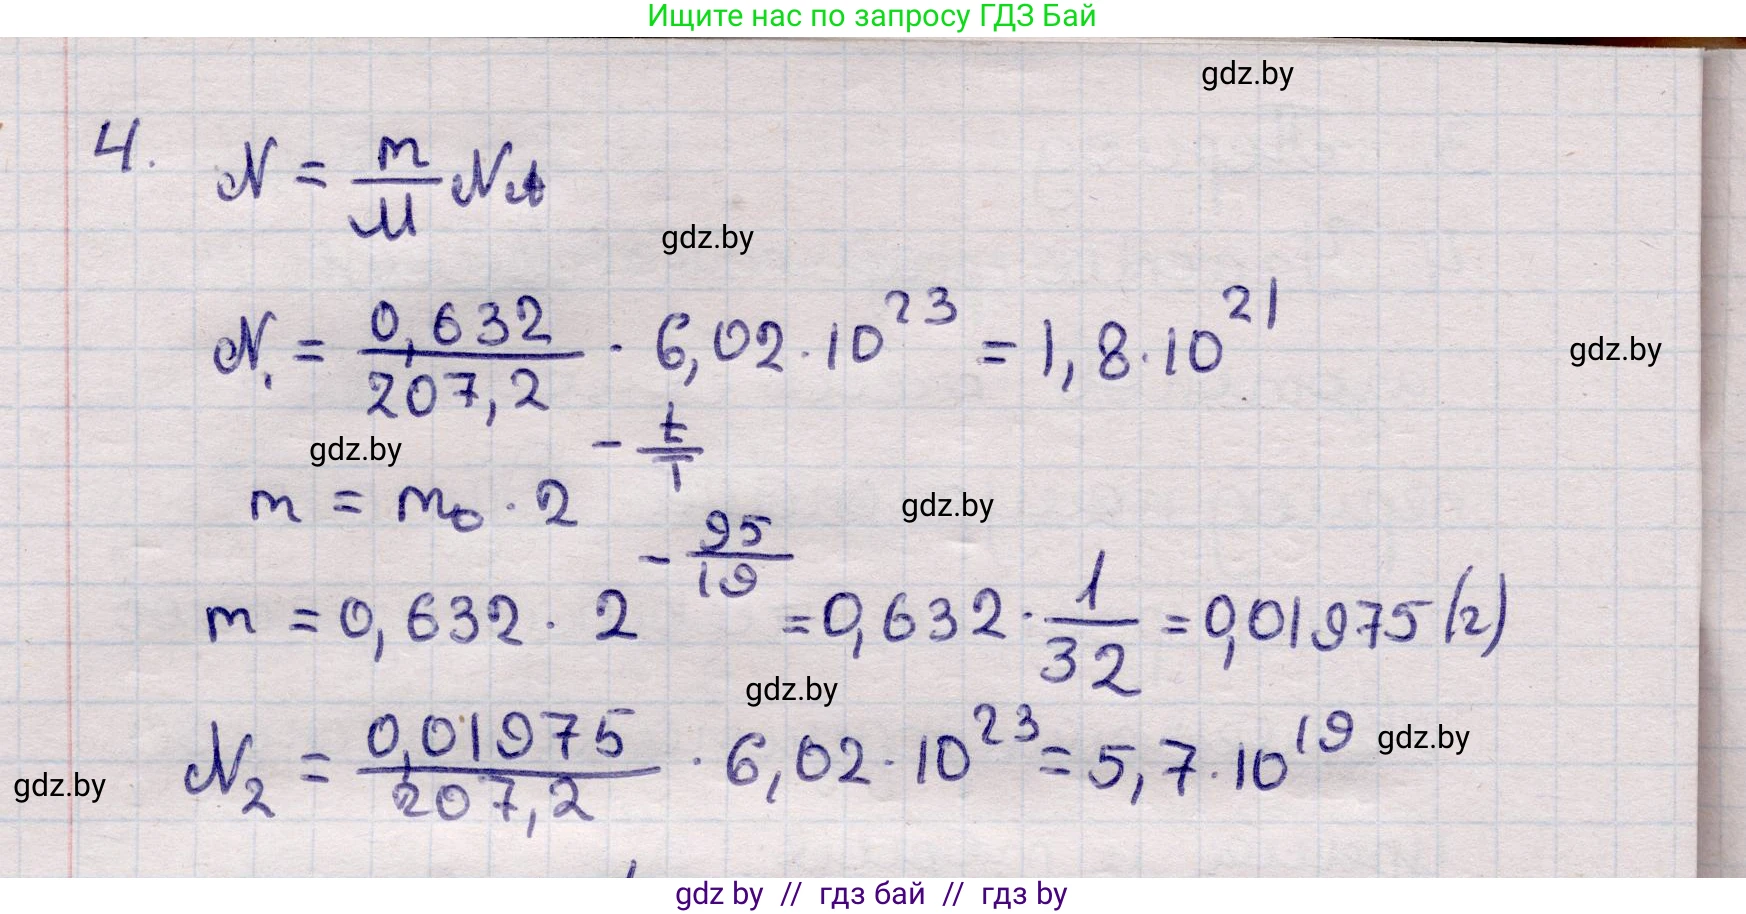 Ищите нас по запросу ГДЗ Бай
gdz.by
4. N = m/M N_A
gdz.by
N₁ = 0,632/207,2 · 6,02 · 10²³ = 1,8 · 10²¹
gdz.by
gdz.by
m = m₀ · 2^(-t/T)
gdz.by
m = 0,632 · 2^(-95/19) = 0,632 · 1/32 = 0,01975 (г)
gdz.by
N₂ = 0,01975/207,2 · 6,02 · 10²³ = 5,7 · 10¹⁹
gdz.by
gdz.by
gdz by // гдз бай // гдз by